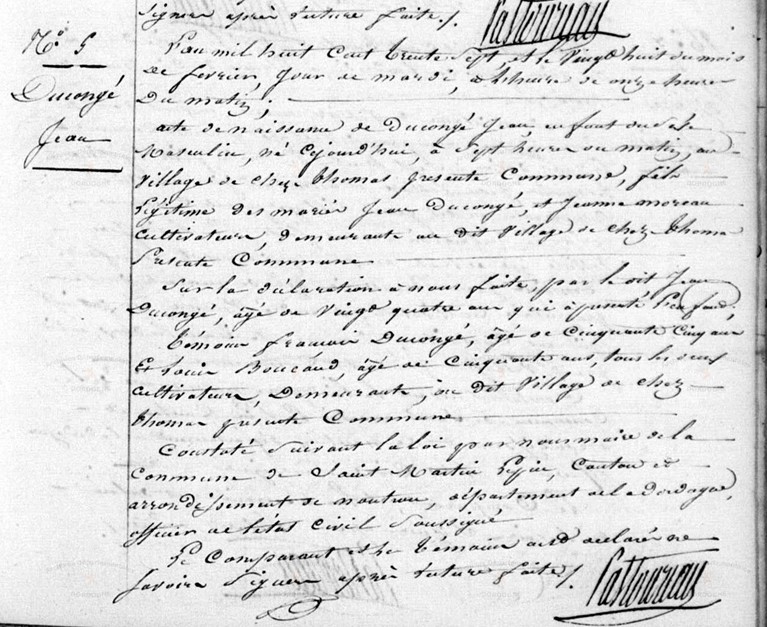 Signer après lecture faite./.
Pastoureau
N.° 5
Ducongé
Jean
L'an mil huit cent trente sept, et le vingt huit du mois
de fevrier, jour de mardi, à l'heure de onze heures
du matin;
acte de naissance de Ducongé Jean, enfant du sexe
Masculin, né cejourd'hui, à sept heures du matin, au
village de chez thomas presente Commune, fils
légitime des mariés Jean Ducongé, et Jeanne moreau
cultivateurs, demeurants au dit village de chez thomas
Presente Commune
Sur la déclaration à nous faite, par le dit Jean
Ducongé, âgé de vingt quatre ans qui a presenté l'enfant;
témoins françois Ducongé, âgé de cinquante cinq ans
Et Bouçaud, âgé de cinquante ans, tous les deux
cultivateurs, Demeurants, au dit village de chez
thomas presente Commune
Constaté suivant la loi par nous maire de la
commune de Saint Martin, Canton et
arrondissement de nontron, département de la Dordogne,
officier de l'état civil soussigné
Le Comparant et les témoins ont declaré ne
savoir Signer après lecture faite /.
Pastoureau